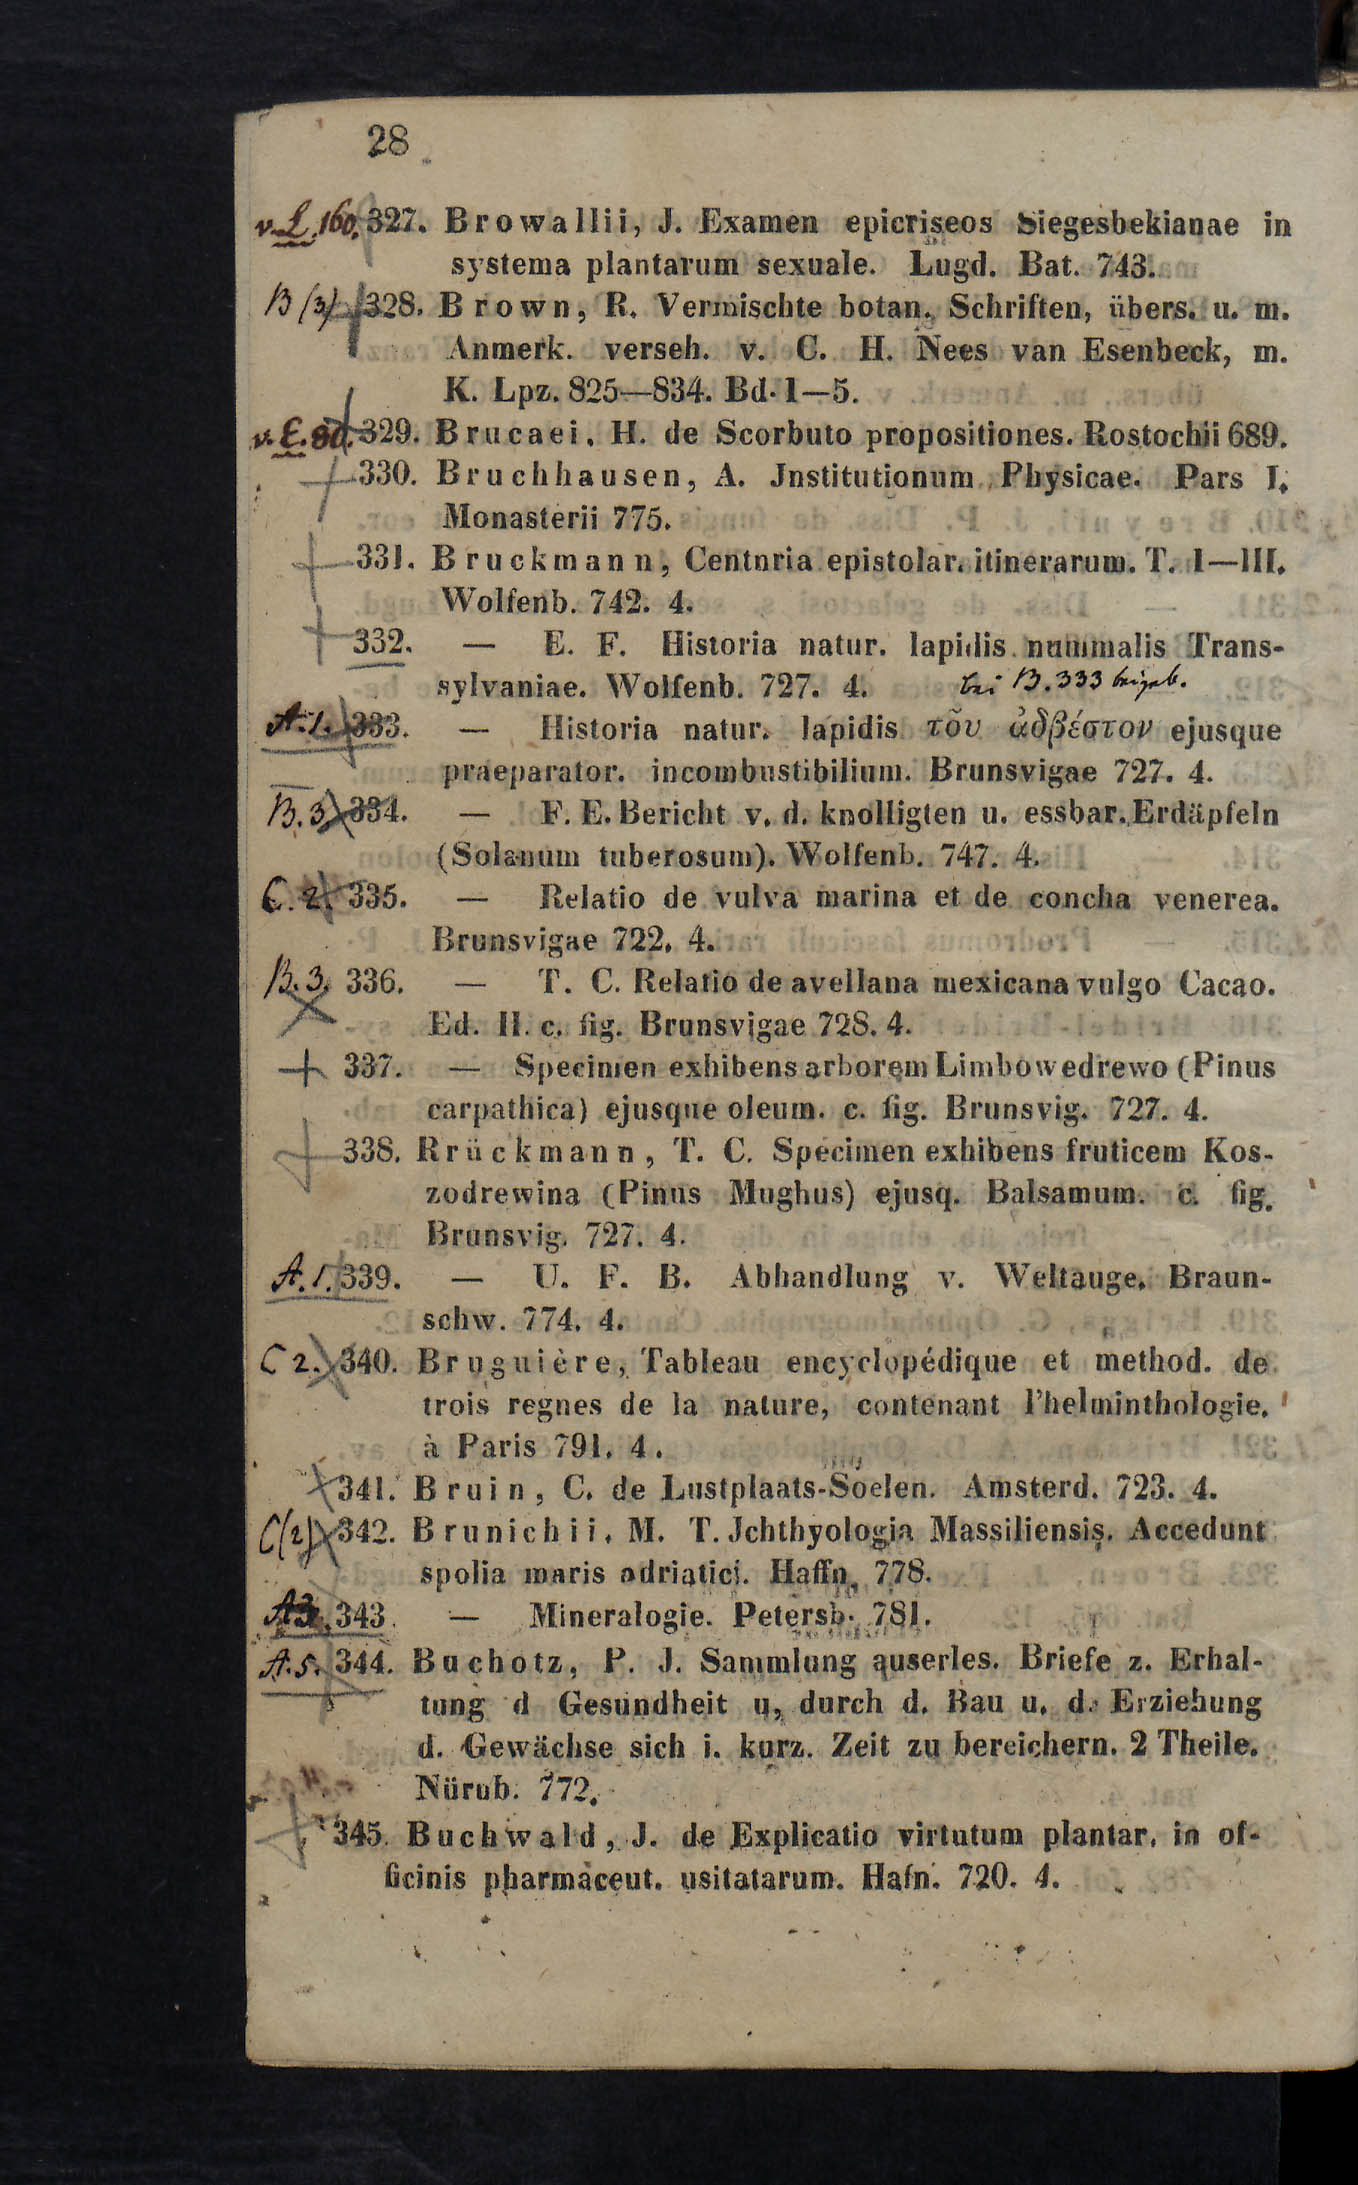 28
v. L. 160. 327. Browallii, J. Examen epicriseos Siegesbekianae in
systema plantarum sexuale. Lugd. Bat. 743.
B (3) 328. Brown, R. Vermischte botan. Schriften, übers. u. m.
Anmerk. verseh. v. C. H. Nees van Esenbeck, m.
K. Lpz. 825—834. Bd. 1—5.
v. E. 80. 329. Brucaei, H. de Scorbuto propositiones. Rostochii 689.
330. Bruchhausen, A. Jnstitutionum Physicae. Pars I.
Monasterii 775.
331. Bruckmann, Centnria epistolar. itinerarum. T. I—III.
Wolfenb. 742. 4.
332. — E. F. Historia natur. lapidis nummalis Trans-
sylvaniae. Wolfenb. 727. 4. bei B. 333
A. 1. 333. — Historia natur. lapidis τοῦ ἀδβέστον ejusque
praeparator. incombustibilium. Brunsvigae 727. 4.
B. 3. 334. — F. E. Bericht v. d. knolligten u. essbar. Erdäpfeln
(Solanum tuberosum). Wolfenb. 747. 4.
C. 2. 335. — Relatio de vulva marina et de concha venerea.
Brunsvigae 722. 4.
B. 3. 336. — T. C. Relatio de avellana mexicana vulgo Cacao.
Ed. II. c. fig. Brunsvigae 728. 4.
337. — Specimen exhibens arborem Limbowedrewo (Pinus
carpathica) ejusque oleum. c. fig. Brunsvig. 727. 4.
338. Rrückmann, T. C. Specimen exhibens fruticem Kos-
zodrewina (Pinus Mughus) ejusq. Balsamum. c. fig.
Brunsvig. 727. 4.
A. 1. 339. — U. F. B. Abhandlung v. Weltauge. Braun-
schw. 774. 4.
C 2. 340. Bruguière, Tableau encyclopédique et method. de
trois regnes de la nature, contenant l'helminthologie.
à Paris 791. 4.
341. Bruin, C. de Lustplaats-Soelen. Amsterd. 723. 4.
C (2) 342. Brunichii, M. T. Jchthyologia Massiliensis. Accedunt
spolia maris adriatici. Haffn. 778.
343. — Mineralogie. Petersb. 781.
A. 5. 344. Buchotz, P. J. Sammlung auserles. Briefe z. Erhal-
tung d Gesundheit u, durch d. Bau u. d. Erziehung
d. Gewächse sich i. kurz. Zeit zu bereichern. 2 Theile.
Nürnb. 772.
345. Buchwald, J. de Explicatio virtutum plantar. in of-
ficinis pharmaceut. usitatarum. Hafn. 720. 4.